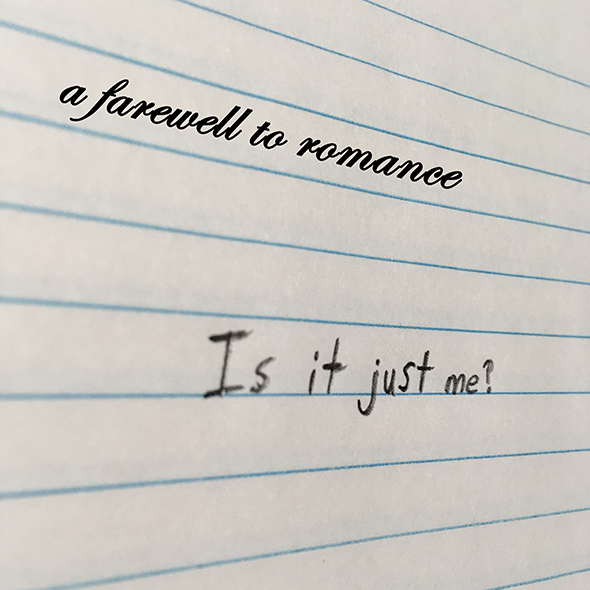 a farewell to romance
Is it just me?